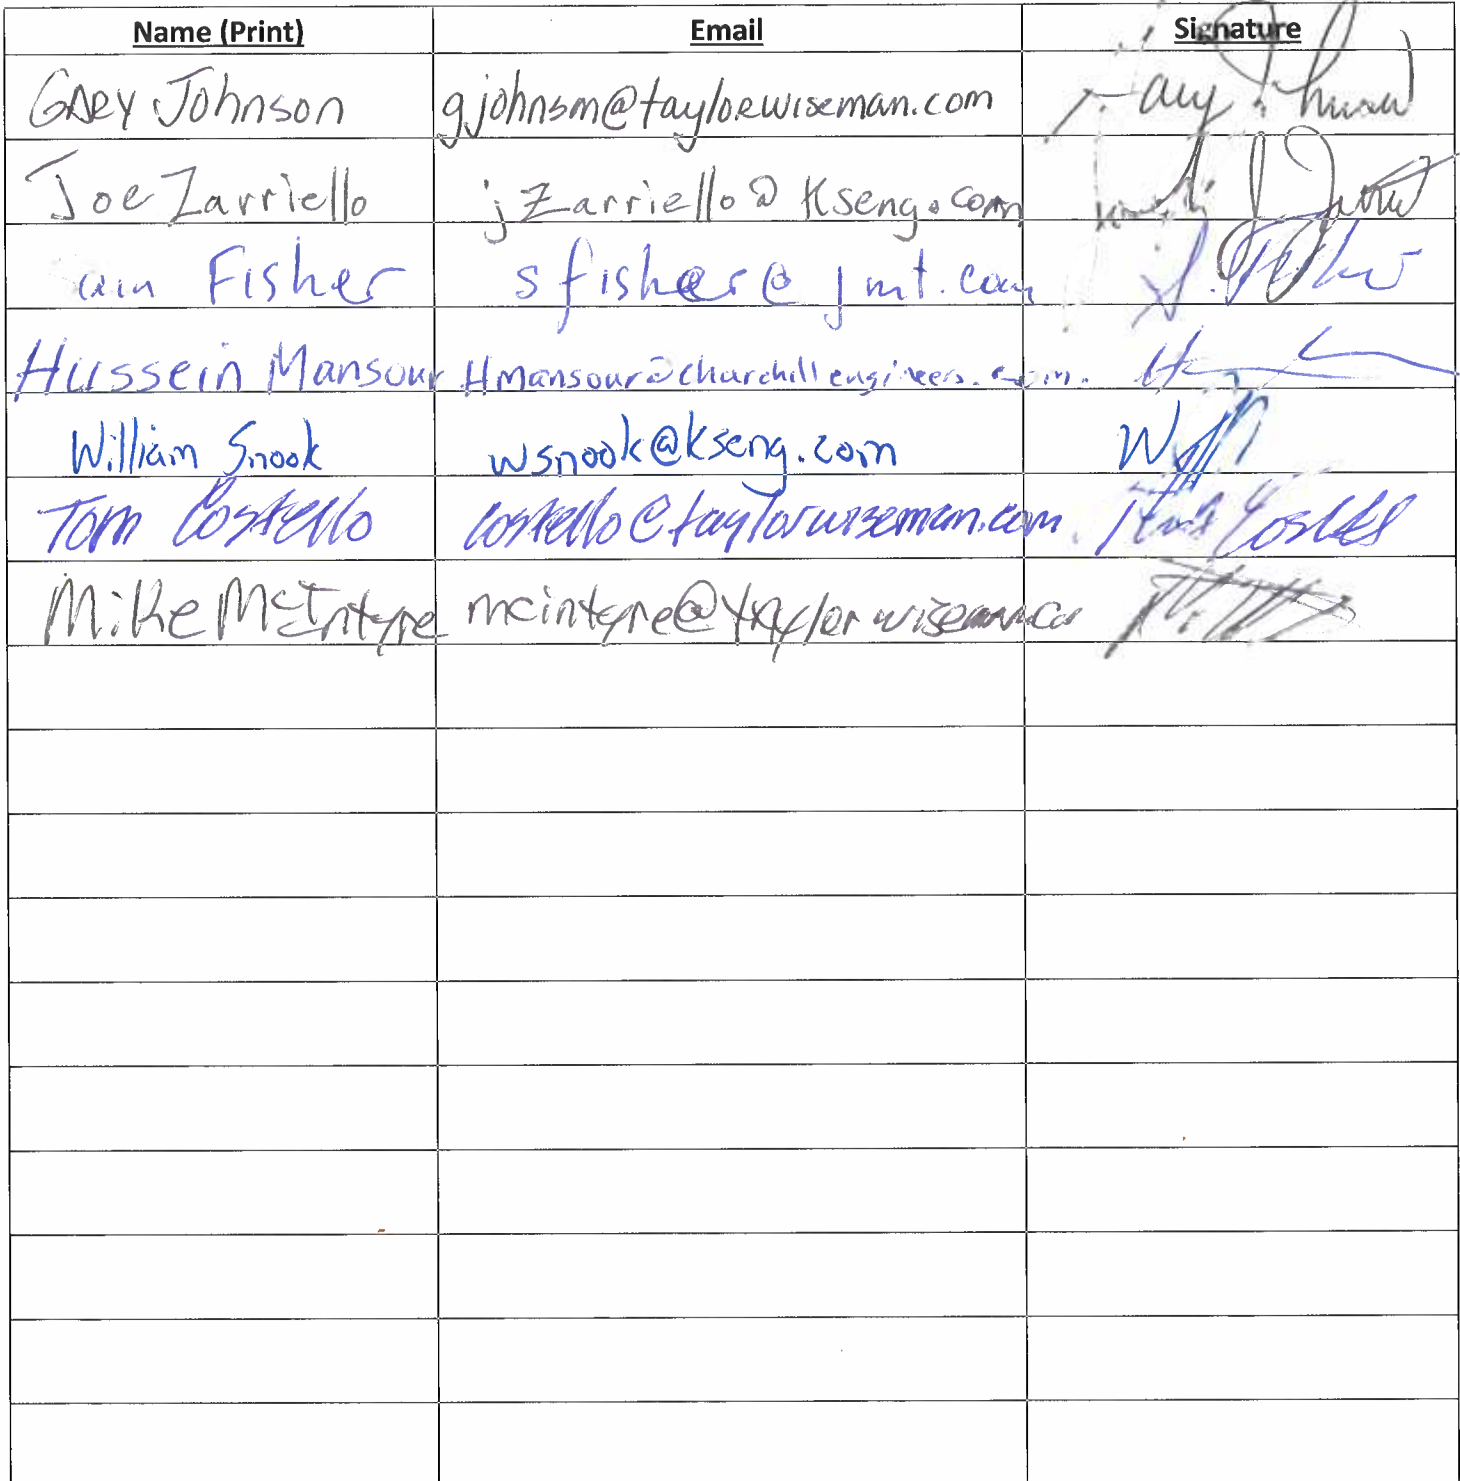 Name (Print) Email Signature
Gary Johnson gjohnson@taylorwiseman.com
Joe Zarriello jzarriello@kseng.com
Fisher sfisher@jmt.com S. Fisher
Hussein Mansour Hmansour@churchillengineers.com.
William Snook wsnook@kseng.com
Tom Costello costello@taylorwiseman.com
Mike McIntyre mcintyre@taylorwiseman.co